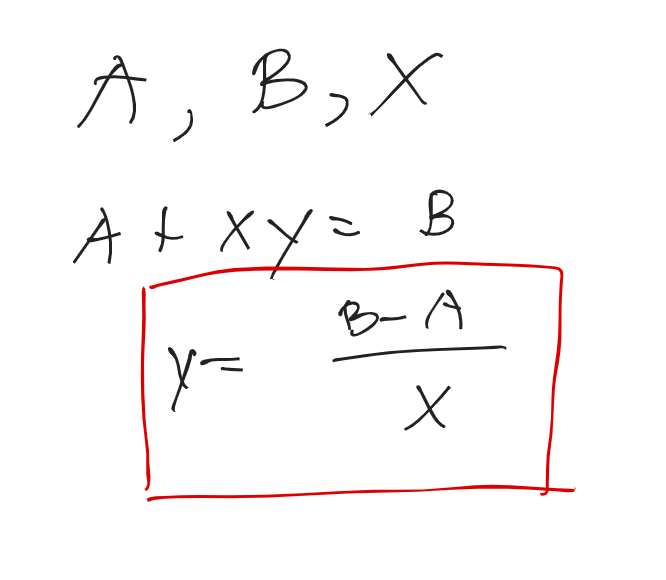 A, B, X
A + XY = B
Y = (B - A) / X